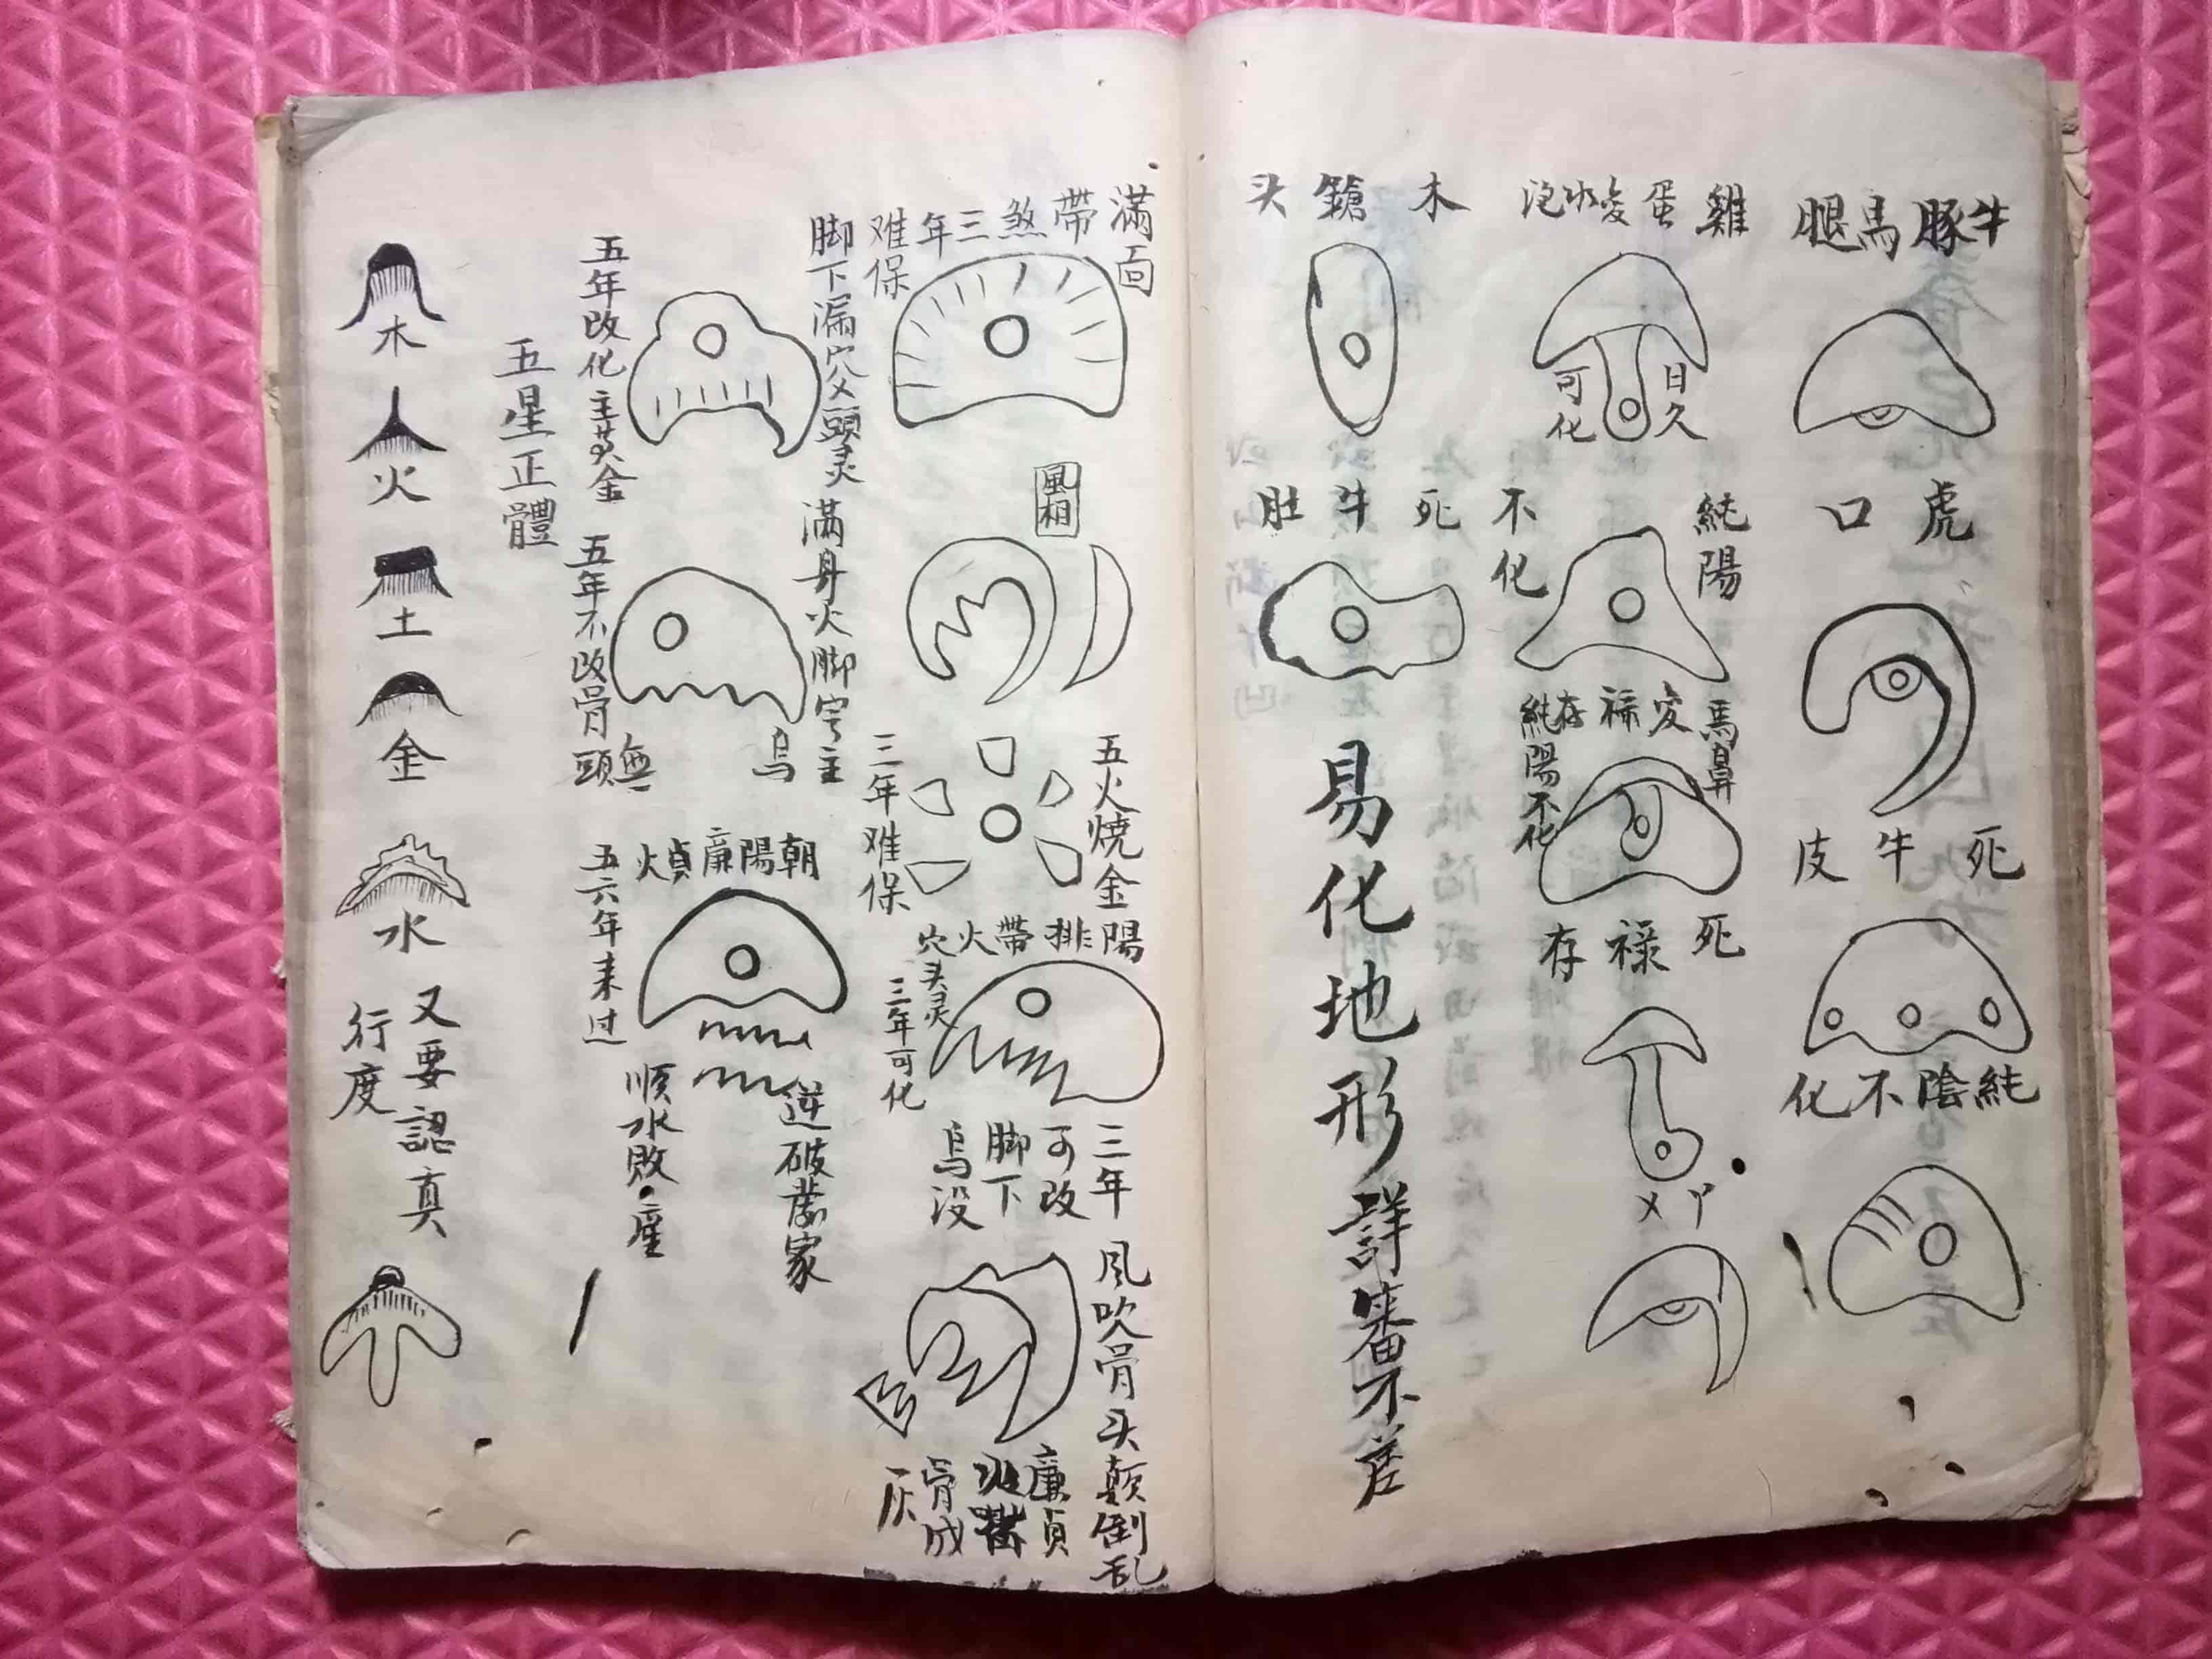 牛豚馬腿
虎口
死牛皮
純陰不化
雞蛋变水泡
日久
可化
純陽
不化
馬鼻
变禄存
純陽不化
死禄存
木鎗头
死牛肚
易化地形詳審不差
滿面
帶煞三年
难保
風相
五火燒金陽
三年难保
陽排帶火穴
头灵
三年可化
三年
可改
脚下
烏没
風吹骨头顛倒乱
廉貞
骨成
灰
脚下漏穴
頭灵
滿身火脚
主
烏
五年改化主黄金
五年不改骨頭無
朝陽廉煩
五六年来过
逆破蕩家
順水敗產
五星正體
木
火
土
金
水
又要認真
行度